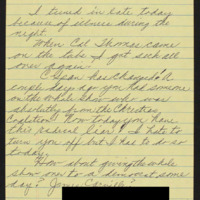 I tuned in late today
because of illness during the
night.
When Cal Thomas came
on the tube I got sick all
over again.
C-Span has changed. A
couple days ago you had someone
on the whole show who was
from the Christian
Coalition. Now today you have
this radical liar? I hate to
turn you off but I have to do so
today.
How about giving the whole
show over to a democrat some
day? James Carville?